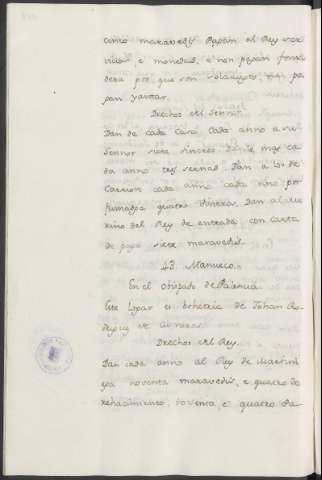 cinco maravedis. Pagan al Rey servi
cios, e monedas, e non pagan fonsa
dera por que son solariegos, non pa
gan yantar.
Drechos del Sennor.
Dan de cada Casa cada anno a su
Sennor siete dineros
da anno tres sernas. Dan a los de
Carrion cada anno cada uno por
fumazga quatro dineros. Dan al me
rino del Rey de entrada con carta
de pago siete maravedis.
43. Manueco.
En el Obispado de Palencia
Este logar es behetria de Johan Ro
driguez de
Drechos del Rey.
Dan cada anno al Rey de martini
ega noventa maravedis, e quatro de
renacimiento, noventa, e quatro ma-